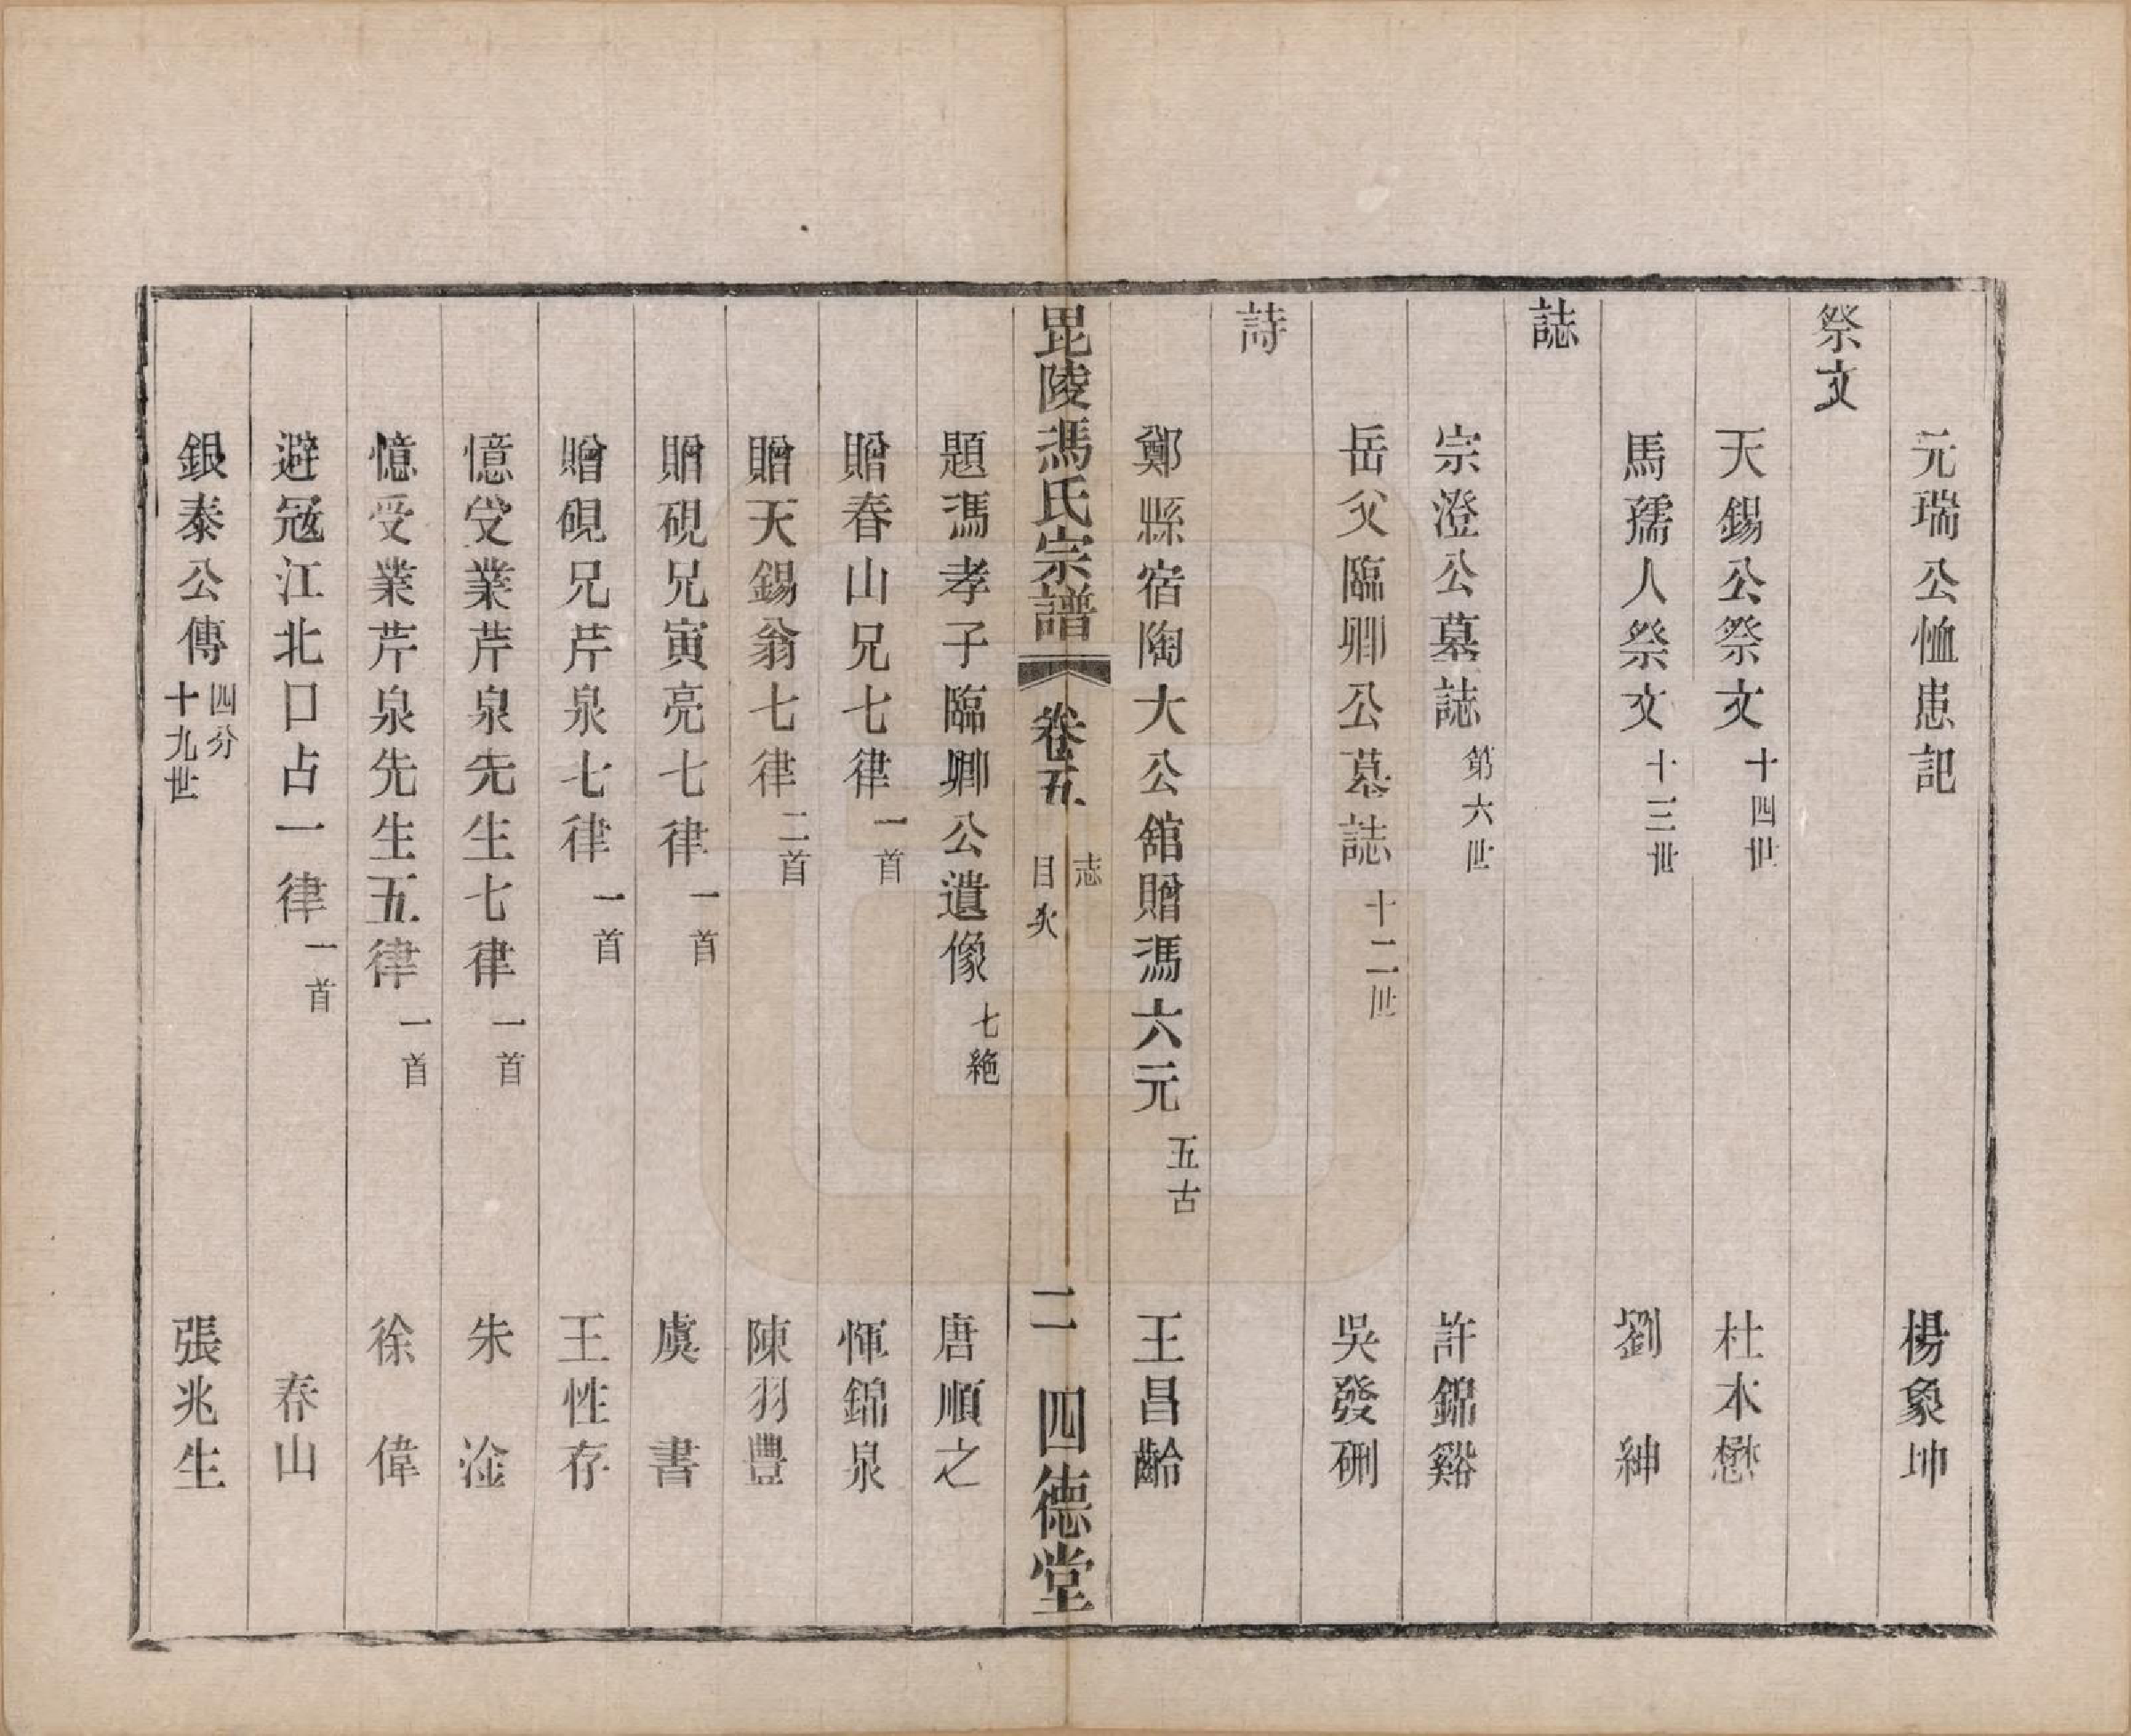 元瑞公恤患記 楊象坤
祭文
天錫公祭文 十四世 杜木懋
馬孺人祭文 十三世 劉紳
誌
宗澄公墓誌 第六世 許錦谿
岳父臨卿公墓誌 十二世 吳發硎
詩
鄭縣宿陶大公舘贈馮六元 五古 王昌齡
毘陵馮氏宗譜 卷五 志目次 二 四德堂
題馮孝子臨卿公遺像 七絶 唐順之
贈春山兄七律 一首 惲錦泉
贈天錫翁七律 二首 陳羽豐
贈硯兄寅亮七律 一首 虞書
贈硯兄芹泉七律 一首 王性存
憶受業芹泉先生七律 一首 朱淦
憶受業芹泉先生五律 一首 徐偉
避寇江北口占一律 一首 春山
銀泰公傳 四分十九世 張兆生